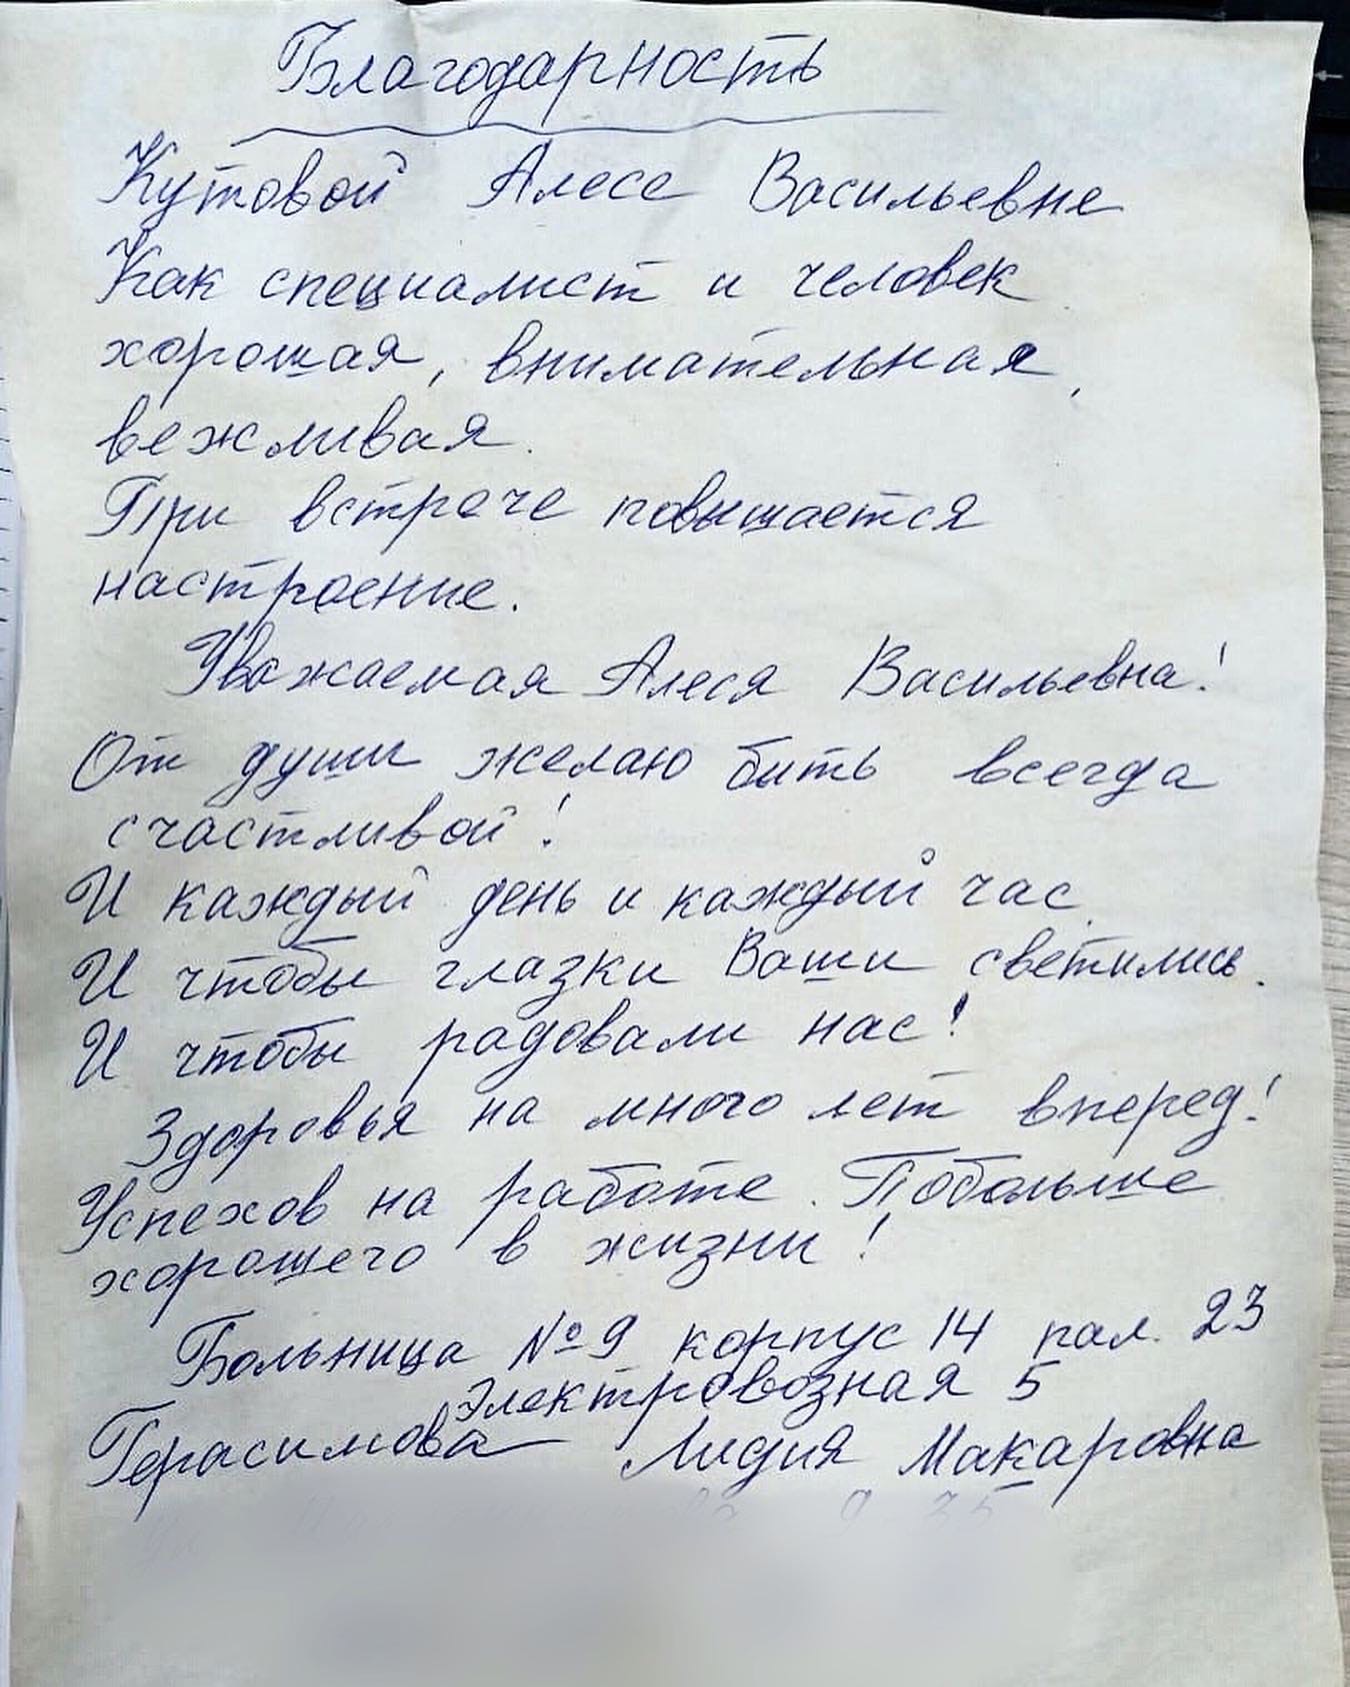 Благодарность
Кутовой Алесе Васильевне
Как специалист и человек
хорошая, внимательная,
вежливая.
При встрече повышается
настроение.
Уважаемая Алеся Васильевна!
От души желаю бить всегда
счастливой!
И каждый день и каждый час.
И чтобы глазки Ваши светились.
И чтобы радовали нас!
Здоровья на много лет вперед!
Успехов на работе. Побольше
хорошего в жизни!
Больница №9 корпус 14 пал. 23
Электровозная 5
Герасимова Лидия Макаровна